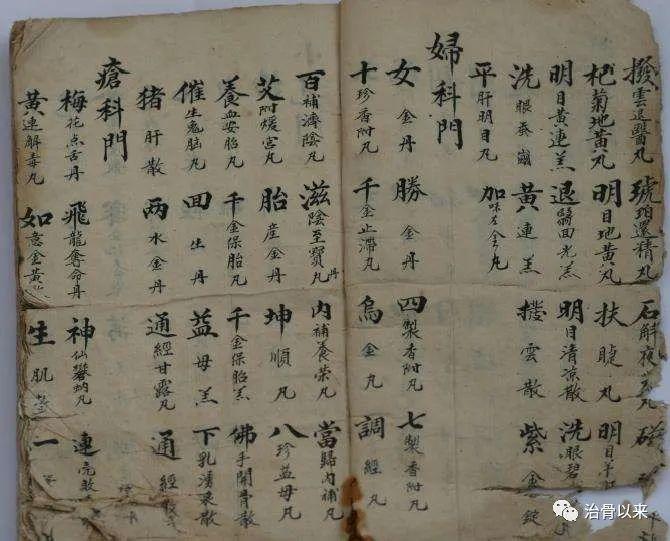 撥雲退翳丸 琥珀還精丸 石斛夜光丸
杞菊地黃丸 明目地黃丸 扶睫丸 明目
明目黃連羔 退翳回光羔 明目清凉散 洗眼碧
洗眼蚕 黃連羔 撥雲散 紫金錠
平肝明目丸 加味左金丸
婦科門
女金丹 勝金丹 四製香附丸 七製香附丸
十珍香附丸 千金止滯丸 烏金丸 調經丸
百補濟陰丸 滋陰至寶丸丹 內補養荣丸 當歸內補丸
艾附煖宮丸 胎産金丹 坤順丸 八珍益母丸
養血安胎丸 千金保胎丸 千金保胎羔 佛手開骨散
催生兔腦丸 回生丹 益母羔 下乳湧泉散
猪肝散 两水金丹 通經甘露丸 通經
瘡科門
梅花点舌丹 飛龍奪命丹 神仙丸 連
黃連解毒丸 如意金黃 生肌 一
治骨以来